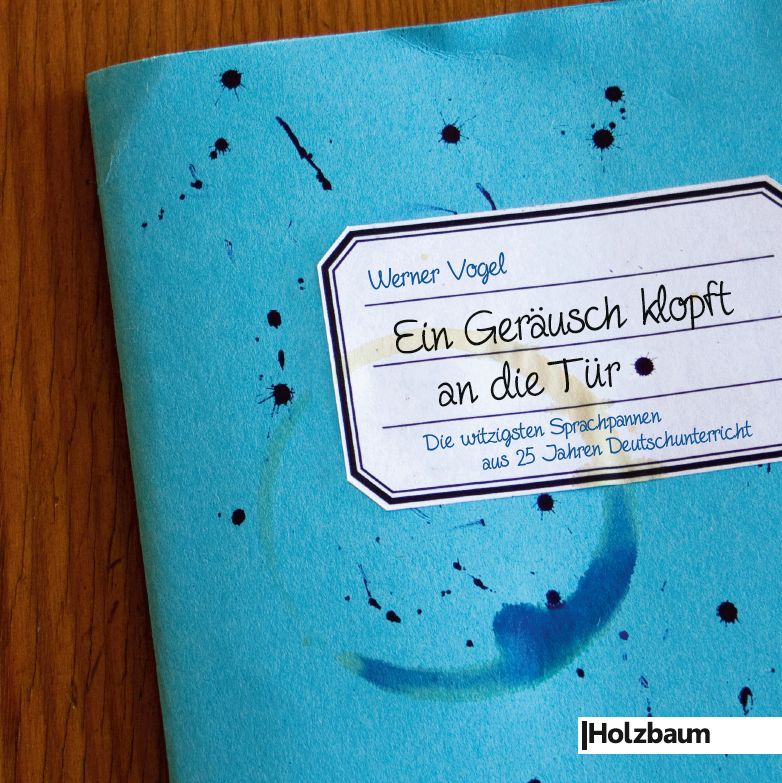 Werner Vogel
Ein Geräusch klopft
an die Tür
Die witzigsten Sprachpannen
aus 25 Jahren Deutschunterricht
Holzbaum